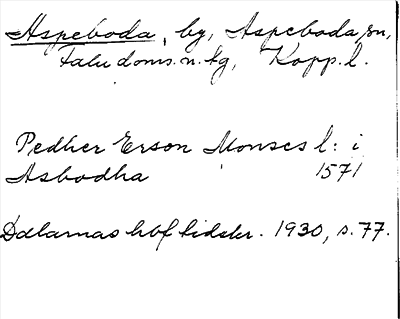 Aspeboda, by, Aspeboda sn,
Falu doms.n. tg, Kopp.l.
Pedher Erson Monses l: i
Asbodha 1571
Dalarnas hbf tidskr. 1930, s. 77.